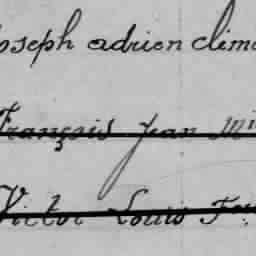 Joseph adrien clima
François Jean Mi
Victor Louis Fr